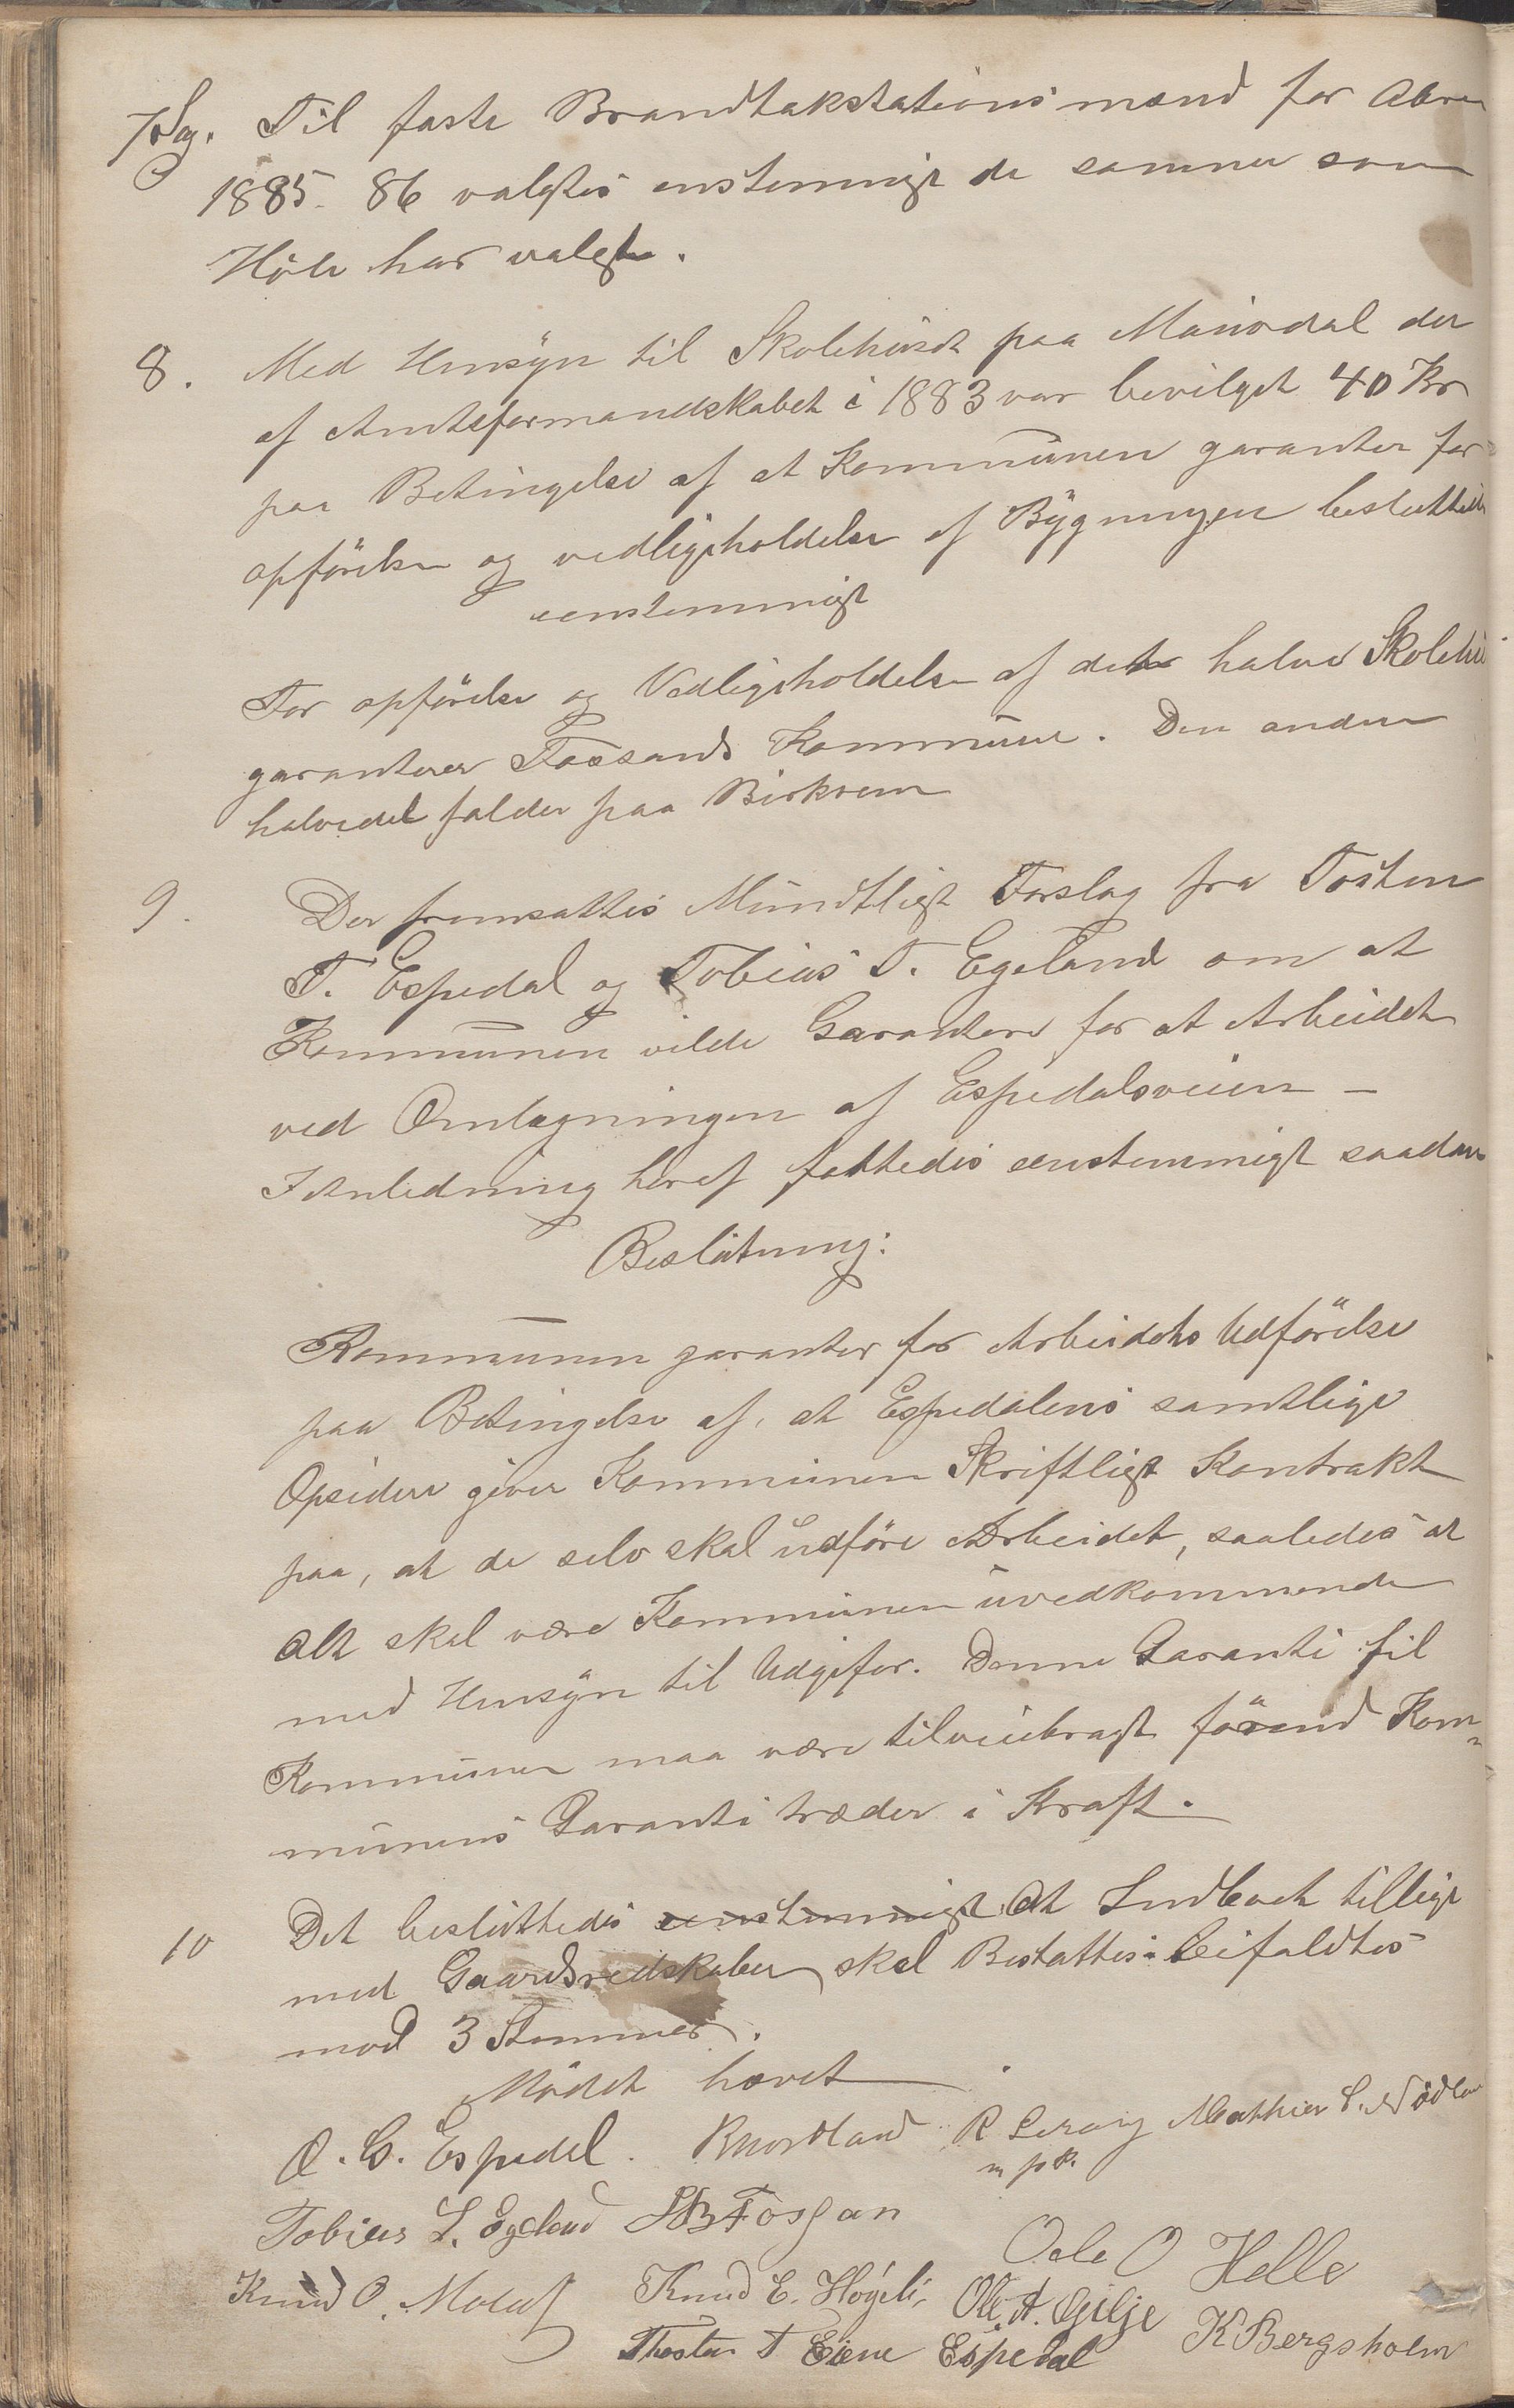 7 Sag. Til faste Brandtakstationsmænd for Aaren
1885-86 valgtes enstemmigt de samme som
Höle har valgt.
8. Med Hensyn til Skolehuset paa Maudal der
af Amtsformandskabet i 1883 var bevilget 40 Kr
paa Betingelse af at Kommunen garanter for
opförelse og vedligeholdelse af Bygningen besluttedes
eenstemmigt
For opförelse og Vedligeholdelse af det halve Skolehus
garanterer Fossands Kommune. Den anden
halvedel falder paa Birkrem
9. Der fremsattes Mundtligt Forslag fra Tosten
T. Espedal og Tobias T. Egeland om at
Kommunen vilde Garantere for at Arbeidet
ved Omlægningen af Espedalsveien –
I Anledning heraf fattedes eenstemmigt saadan
Beslutning:
Kommunen garanter for Arbeidets Udförelse
paa Betingelse af, at Espedalens samtlige
Opsidere giver Kommunen Skriftligt Kontrakt
paa, at de selv skal udföre Arbeidet, saaledes at
Alt skal være Kommunen uvedkommende
med Hensyn til Udgifer. Denne Garanti til
Kommunen maa være tilveiebragt förend Kom-
munens Garanti træder i Kraft.
10 Det besluttedes eenstemmigt At Indboet tillige
med Gaardsredskaber skal Beskattes. Beifaldtes
mod 3 Stemmer.
Mödet hævet
O. C. Espedal. R Nordland R Leraig Mathias S. Nödland
m p P.
Tobias T. Egeland Fossan
Ole O Helle
Knud O. Knud E. Högeli, Ole. A. Gilje
Thosten T Eiene Espedal K Bergsholm